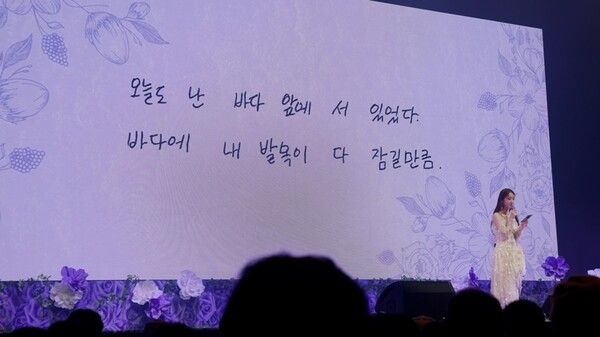 오늘도 난 바다 앞에 서 있었다.
바다에 내 발목이 다 잠길만큼.